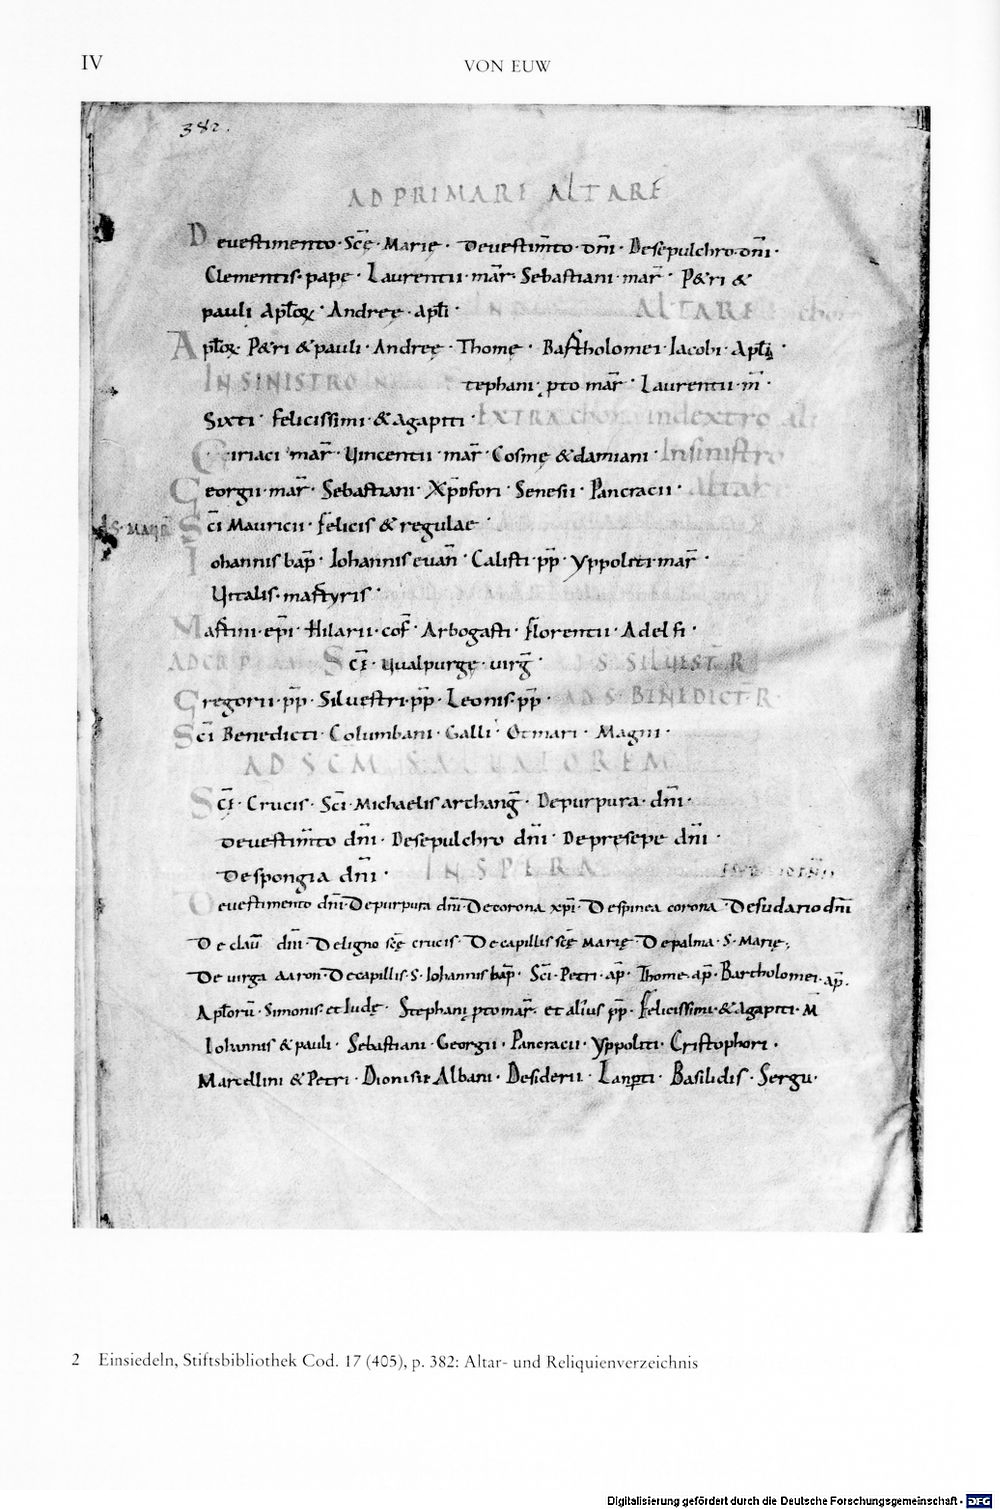 IV
VON EUW
382.
AD PRIMARE ALTARE
Deuestimento · Scę · Marię · Deuestim̅to · dn̅i · Desepulchro · dn̅i ·
Clementis · papę · Laurentii · mar̅ · Sebastiani · mar̅ · P&ri &
pauli Apl̅oꝝ · Andreę · apl̅i ·
ALTARE
Apl̅oꝝ · P&ri & pauli · Andreę · Thomę · Bartholomei · Iacobi · Apl̅i ·
IN SINISTRO
tephani · pto mar̅ · Laurentii · m̅ ·
Sixti · felicissimi · & agapiti · EXTRA chor indextro
Ciriaci mar̅ · Uincentii · mar̅ · Cosmę & damiani · Insinistro
Georgii · mar̅ · Sebastiani · Xp̅ofori · Senesii · Pancracii · Altare
S · MAUR
Sc̅i Mauricii · felicis & regulae ·
Iohannis bap̅ · Iohannis euan̅ · Calisti · pp̅ · Yppoliti · mar̅ ·
Uitalis · martyris ·
Martini · ep̅i · Hilarii · cof̅ · Arbogasti · florentii · Adelfi ·
Sc̅ę · Uualpurgę · uirg̅ · S SILUESTR̅
Gregorii · pp̅ · Siluestri · pp̅ · Leonis · pp̅ · AD S · BENEDICT̅
Sc̅i Benedicti · Columbani · Galli · Otmari · Magni ·
AD SC̅M SALUATOREM
Sc̅ę · Crucis · Sc̅i · Michaelis archang̅ · Depurpura · dn̅i ·
Deuestim̅to dn̅i · Desepulchro dn̅i · Depresepe dn̅i ·
Despongia dn̅i · IN SPERA
Deuestimento dn̅i · Depurpura dn̅i · Decorona xp̅i · Despinea corona · Desudario dn̅i
De clau̅ dn̅i · De ligno sc̅ę crucis · De capillis sc̅ę Marię · De palma · S · Marię ;
De uirga aaron · De capillis · S · Iohannis bap̅ · Sc̅i · Petri · ap̅ · Thome · ap̅ · Bartholomei · ap̅ ·
Apl̅oru̅ · Simonis · et Iudę · Stephani pto mar̅ · et alius pp̅ · Felicissimi · & Agapiti · M̅
Iohannis & pauli · Sebastiani · Georgii · Pancracii · Yppoliti · Cristophori ·
Marcellini & Petri · Dionisii · Albani · Desiderii · Lanp̅ti · Basilidis · Sergii ·
2 Einsiedeln, Stiftsbibliothek Cod. 17 (405), p. 382: Altar- und Reliquienverzeichnis
Digitalisierung gefördert durch die Deutsche Forschungsgemeinschaft - DFG